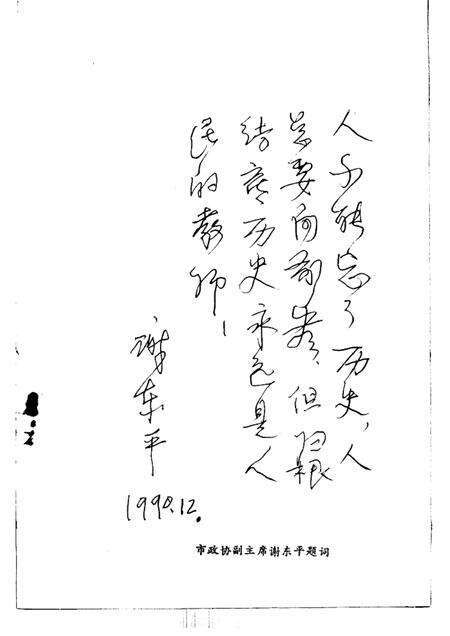 人不能忘了历史，人
总要向前看，但归根
结底历史永远是人
民的教师！
谢东平
1990.12.
市政协副主席谢东平题词